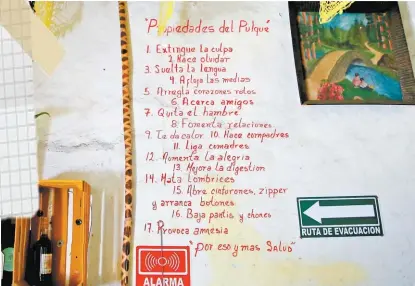 "Propiedades del Pulque"
1. Extingue la culpa
2. Hace olvidar
3. Suelta la lengua
4. Afloja las medias
5. Arregla corazones rotos
6. Acerca amigos
7. Quita el hambre
8. Fomenta relaciones
9. Te da calor 10. Hace compadres
11. Liga comadres
12. Aumenta la alegria
13. Mejora la digestion
14. Mata lombrices
15. Abre cinturones, zipper
y arranca botones
16. Baja pantis y chones
17. Provoca amnesia
"por eso y mas SALUD"
RUTA DE EVACUACION
ALARMA